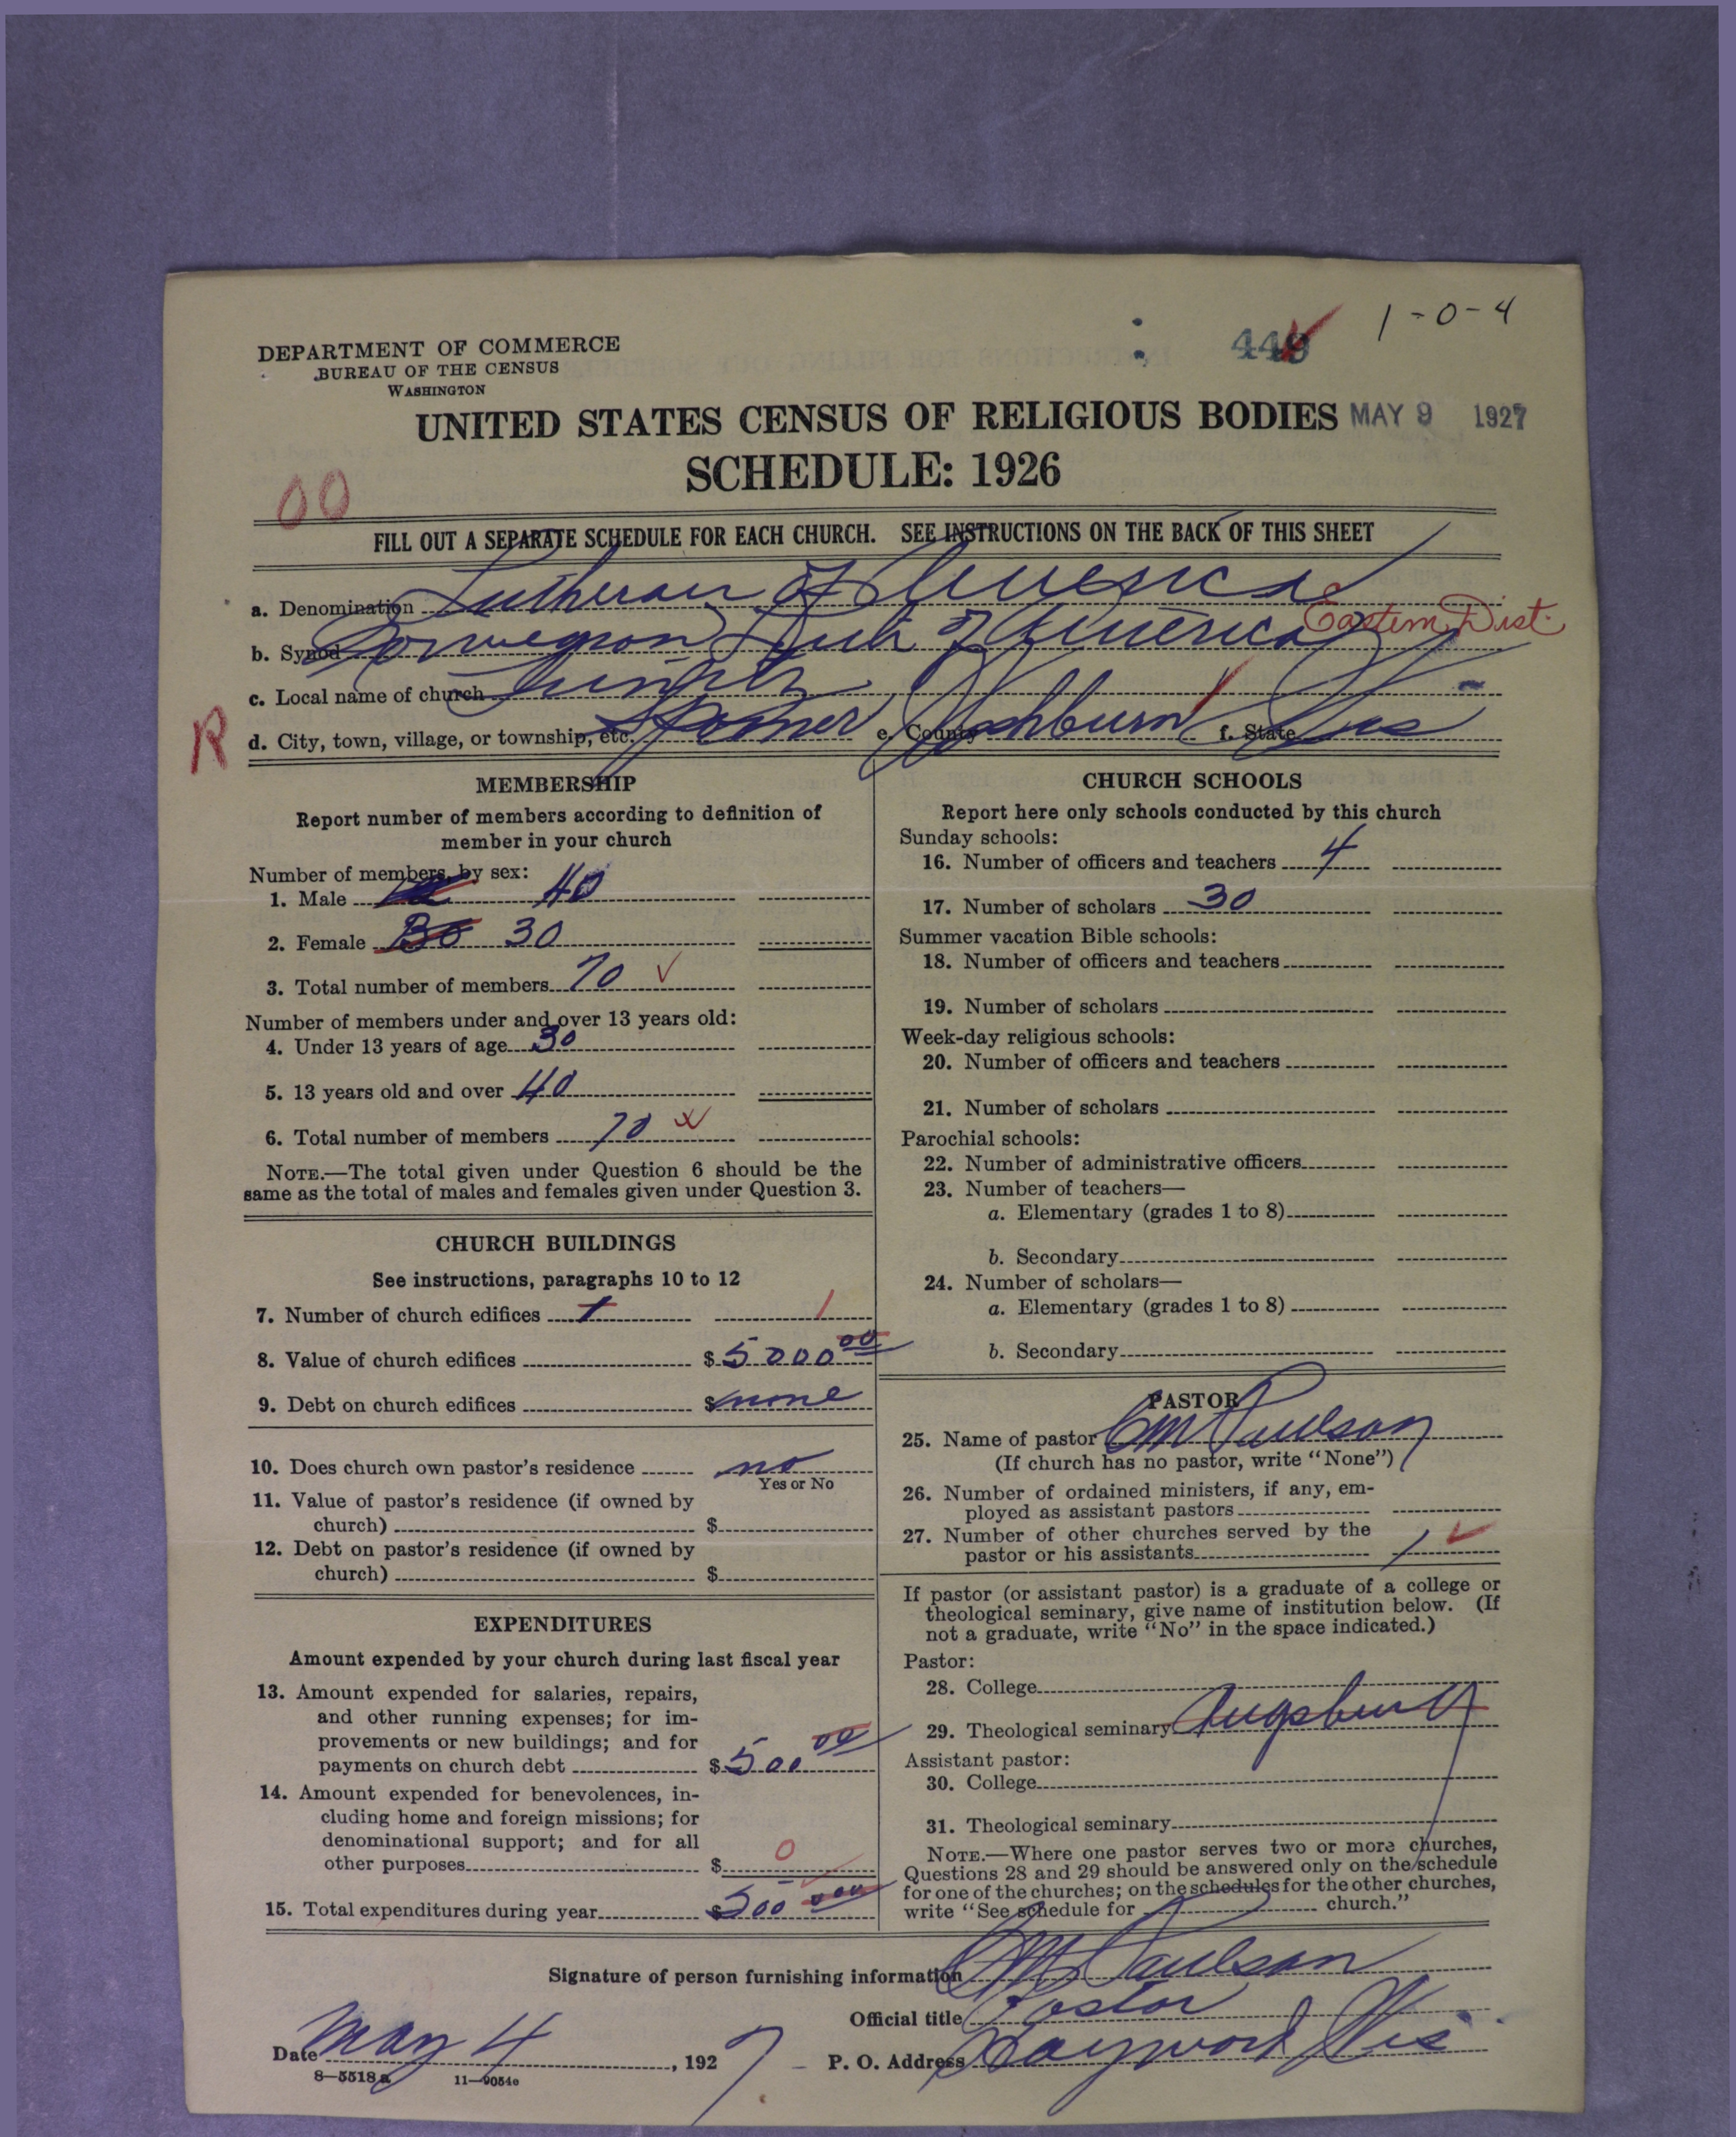 1-0-4
449
DEPARTMENT OF COMMERCE
BUREAU OF THE CENSUS
WASHINGTON
UNITED STATES CENSUS OF RELIGIOUS BODIES MAY 9 1927
SCHEDULE: 1926
00
FILL OUT A SEPARATE SCHEDULE FOR EACH CHURCH. SEE INSTRUCTIONS ON THE BACK OF THIS SHEET
a. Denomination Lutheran of America
Eastern Dist.
b. Synod Norwegian Luth of America
c. Local name of church Trinity
R
d. City, town, village, or township, etc. Spooner e. County Washburn f. State Wis
MEMBERSHIP
Report number of members according to definition of
member in your church
Number of members, by sex:
1. Male 40
2. Female 30
3. Total number of members 70
Number of members under and over 13 years old:
4. Under 13 years of age 30
5. 13 years old and over 40
6. Total number of members 70
NOTE.—The total given under Question 6 should be the
same as the total of males and females given under Question 3.
CHURCH BUILDINGS
See instructions, paragraphs 10 to 12
7. Number of church edifices 1 1
8. Value of church edifices $ 5000 00
9. Debt on church edifices $ none
10. Does church own pastor's residence no
Yes or No
11. Value of pastor's residence (if owned by
church) $
12. Debt on pastor's residence (if owned by
church) $
EXPENDITURES
Amount expended by your church during last fiscal year
13. Amount expended for salaries, repairs,
and other running expenses; for im-
provements or new buildings; and for
payments on church debt $ 500 00
14. Amount expended for benevolences, in-
cluding home and foreign missions; for
denominational support; and for all
other purposes $ 0
15. Total expenditures during year $ 500
CHURCH SCHOOLS
Report here only schools conducted by this church
Sunday schools:
16. Number of officers and teachers 4
17. Number of scholars 30
Summer vacation Bible schools:
18. Number of officers and teachers
19. Number of scholars
Week-day religious schools:
20. Number of officers and teachers
21. Number of scholars
Parochial schools:
22. Number of administrative officers
23. Number of teachers—
a. Elementary (grades 1 to 8)
b. Secondary
24. Number of scholars—
a. Elementary (grades 1 to 8)
b. Secondary
PASTOR
25. Name of pastor CM Paulson
(If church has no pastor, write "None")
26. Number of ordained ministers, if any, em-
ployed as assistant pastors
27. Number of other churches served by the
pastor or his assistants 1
If pastor (or assistant pastor) is a graduate of a college or
theological seminary, give name of institution below. (If
not a graduate, write "No" in the space indicated.)
Pastor:
28. College
29. Theological seminary Augsburg
Assistant pastor:
30. College
31. Theological seminary
NOTE.—Where one pastor serves two or more churches,
Questions 28 and 29 should be answered only on the schedule
for one of the churches; on the schedules for the other churches,
write "See schedule for church."
Signature of person furnishing information CM Paulson
Official title Pastor
Date May 4, 1927 P. O. Address Hayward Wis
8—5518a 11—9054c